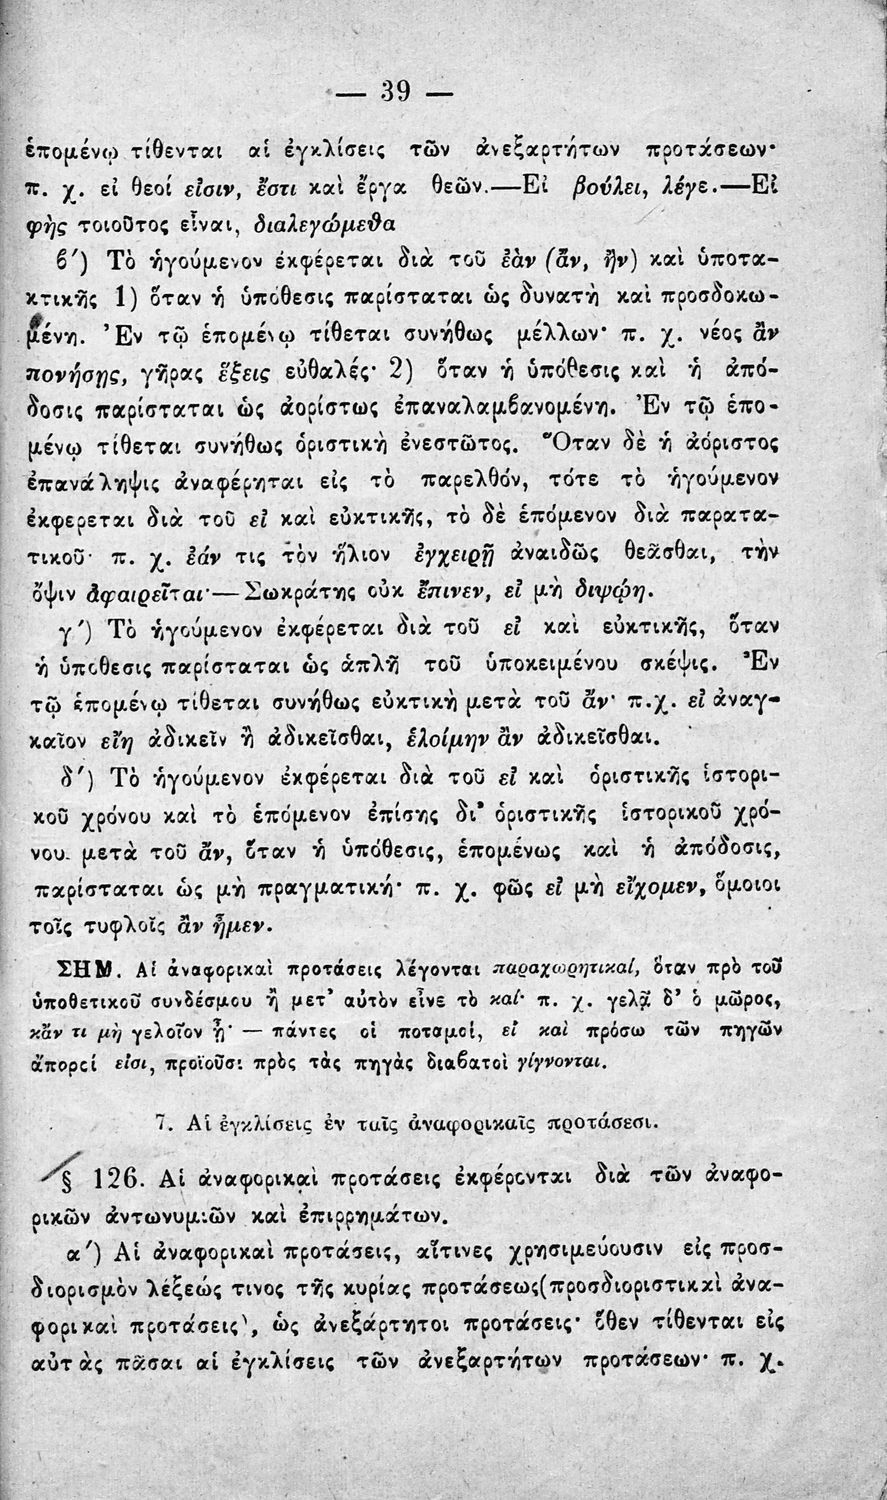 — 39 —
ἑπομένῳ τίθενται αἱ ἐγκλίσεις τῶν ἀνεξαρτήτων προτάσεων·
π. χ. εἰ θεοί εἰσιν, ἔστι καὶ ἔργα θεῶν.—Εἰ βούλει, λέγε.—Εἰ
φῂς τοιοῦτος εἶναι, διαλεγώμεθα
ϐ′) Τὸ ἡγούμενον ἐκφέρεται διὰ τοῦ ἐὰν (ἄν, ἤν) καὶ ὑποτα-
κτικῆς 1) ὅταν ἡ ὑπόθεσις παρίσταται ὡς δυνατὴ καὶ προσδοκω-
μένη. Ἐν τῷ ἑπομένῳ τίθεται συνήθως μέλλων· π. χ. νέος ἂν
πονήσῃς, γῆρας ἕξεις εὐθαλές· 2) ὅταν ἡ ὑπόθεσις καὶ ἡ ἀπό-
δοσις παρίσταται ὡς ἀορίστως ἐπαναλαμϐανομένη. Ἐν τῷ ἑπο-
μένῳ τίθεται συνήθως ὁριστικὴ ἐνεστῶτος. Ὅταν δὲ ἡ ἀόριστος
ἐπανάληψις ἀναφέρηται εἰς τὸ παρελθόν, τότε τὸ ἡγούμενον
ἐκφερεται διὰ τοῦ εἰ καὶ εὐκτικῆς, τὸ δὲ ἑπόμενον διὰ παρατα-
τικοῦ· π. χ. ἐάν τις τὸν ἥλιον ἐγχειρῇ ἀναιδῶς θεᾶσθαι, τὴν
ὄψιν ἀφαιρεῖται·—Σωκράτης οὐκ ἔπινεν, εἰ μὴ διψῴη.
γ′) Τὸ ἡγούμενον ἐκφέρεται διὰ τοῦ εἰ καὶ εὐκτικῆς, ὅταν
ἡ ὑπόθεσις παρίσταται ὡς ἁπλῆ τοῦ ὑποκειμένου σκέψις. Ἐν
τῷ ἑπομένῳ τίθεται συνήθως εὐκτικὴ μετὰ τοῦ ἄν· π.χ. εἰ ἀναγ-
καῖον εἴη ἀδικεῖν ἢ ἀδικεῖσθαι, ἑλοίμην ἂν ἀδικεῖσθαι.
δ′) Τὸ ἡγούμενον ἐκφέρεται διὰ τοῦ εἰ καὶ ὁριστικῆς ἱστορι-
κοῦ χρόνου καὶ τὸ ἑπόμενον ἐπίσης δι' ὁριστικῆς ἱστορικοῦ χρό-
νου μετὰ τοῦ ἄν, ὅταν ἡ ὑπόθεσις, ἑπομένως καὶ ἡ ἀπόδοσις,
παρίσταται ὡς μὴ πραγματική· π. χ. φῶς εἰ μὴ εἴχομεν, ὅμοιοι
τοῖς τυφλοῖς ἂν ἦμεν.
ΣΗΜ. Αἱ ἀναφορικαὶ προτάσεις λέγονται παραχωρητικαί, ὅταν πρὸ τοῦ
ὑποθετικοῦ συνδέσμου ἢ μετ' αὐτὸν εἶνε τὸ καί· π. χ. γελᾷ δ' ὁ μῶρος,
κἄν τι μὴ γελοῖον ᾖ· — πάντες οἱ ποταμοί, εἰ καὶ πρόσω τῶν πηγῶν
ἄποροί εἰσι, προϊοῦσι πρὸς τὰς πηγὰς διαϐατοὶ γίγνονται.
7. Αἱ ἐγκλίσεις ἐν ταῖς ἀναφορικαῖς προτάσεσι.
§ 126. Αἱ ἀναφορικαὶ προτάσεις ἐκφέρονται διὰ τῶν ἀναφο-
ρικῶν ἀντωνυμιῶν καὶ ἐπιρρημάτων.
α′) Αἱ ἀναφορικαὶ προτάσεις, αἵτινες χρησιμεύουσιν εἰς προσ-
διορισμὸν λέξεώς τινος τῆς κυρίας προτάσεως(προσδιοριστικαὶ ἀνα-
φορικαὶ προτάσεις), ὡς ἀνεξάρτητοι προτάσεις· ὅθεν τίθενται εἰς
αὐτὰς πᾶσαι αἱ ἐγκλίσεις τῶν ἀνεξαρτήτων προτάσεων· π. χ.